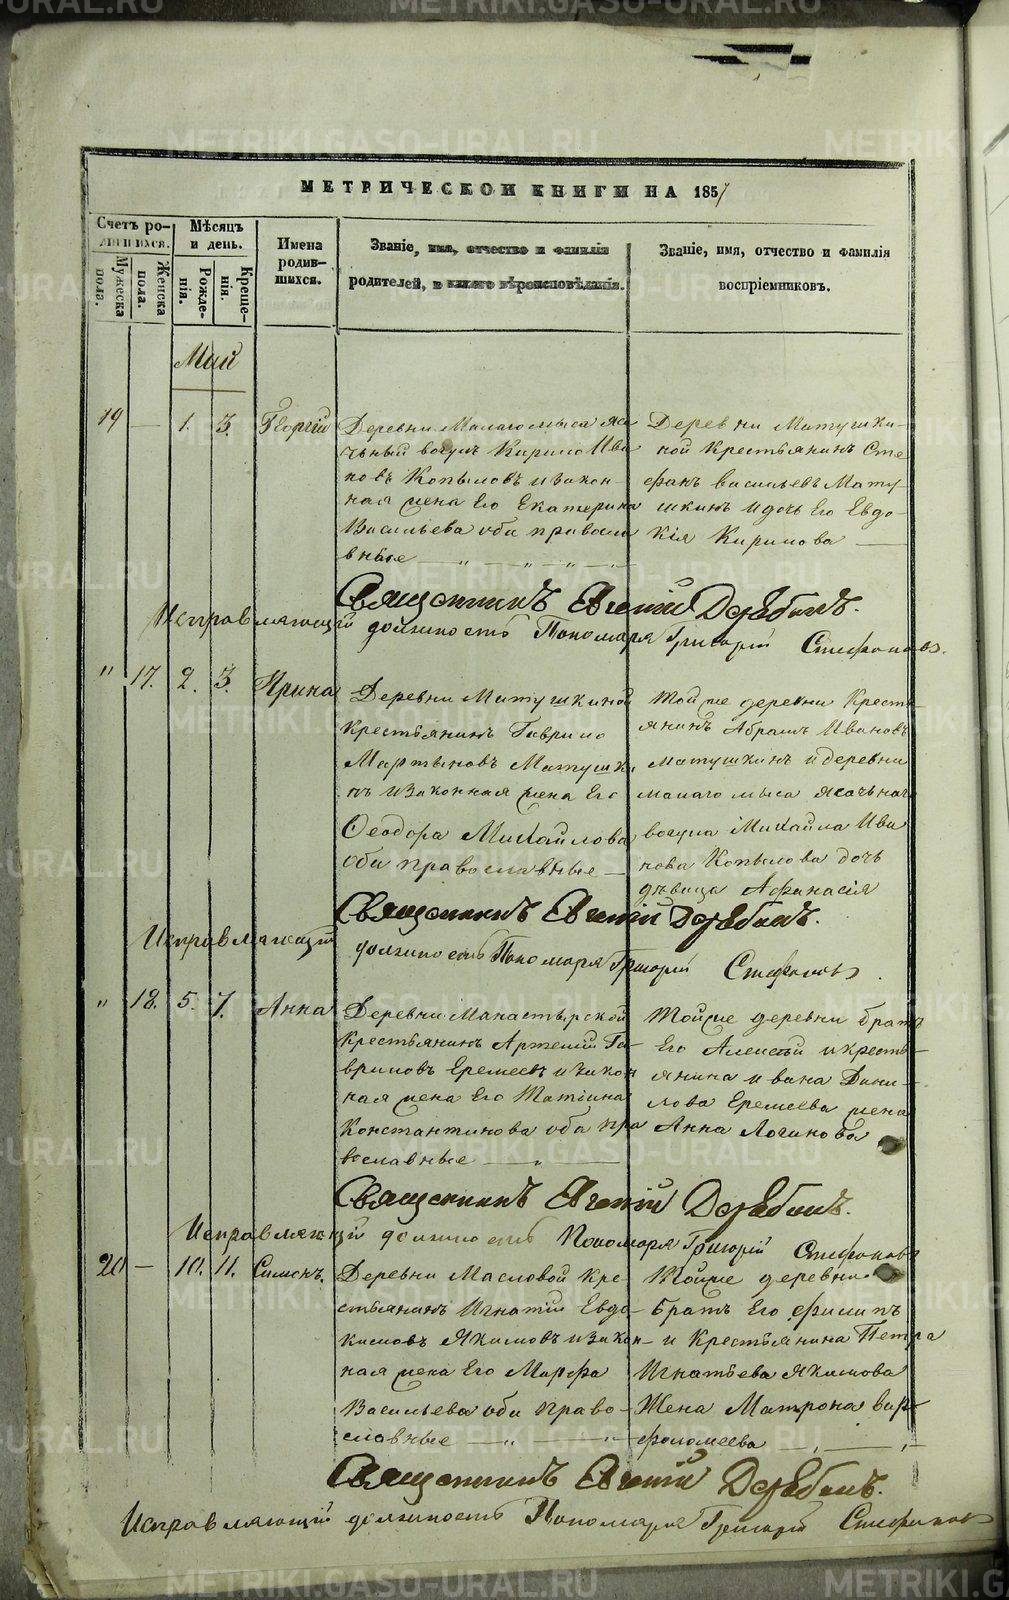 METRIKI.GASO-URAL.RU
МЕТРИЧЕСКОЙ КНИГИ НА 1857
Счетъ родившихся.
Мѣсяцъ и день.
Имена родившихся.
Званіе, имя, отчество и фамилія родителей, и какого вѣроисповѣданія.
Званіе, имя, отчество и фамилія воспріемниковъ.
Мужеска пола.
Женска пола.
Рожденія.
Крещенія.
Май
19 — 1. 3. Георгій
Деревни Малагомыса яса
чьный вогулъ Кирило Ива
новъ Копыловъ и закон-
ная жена Его Екатерина
Васильева оба правосла
вные
Деревни Матушки-
ной Крестьянинъ Сте
фанъ Васильевъ Мату-
шкинъ и дочь Его Евдо-
кія Кирилова
Священникъ Евгеній
Исправляющій должность Пономаря Григорій Стефановъ.
" 17. 2. 3. Ирина
Деревни Матушкиной
Крестьянинъ Гаврило
Мартыновъ Матушки
нъ и законная жена Его
Феодора Михайлова
оба православные
Той же деревни Кресть
янинъ Абрамъ Ивановъ
Матушкинъ и деревни
малагомыса ясачьнаго
вогула Михайла Ива
нова Копылова дочь
дѣвица Афанасія
Священникъ Евгеній
Исправляющій должность Пономаря Григорій Стефановъ.
" 18. 5. 7. Анна
Деревни Манастырской
Крестьянинъ Артемій Га-
вриловъ Еремеевъ и закон
ная жена Его Татіана
Константинова оба пра
вославные
Той же деревни братъ
Его Алексѣй и кресть-
янина Ивана Дани-
лова Еремеева жена
Анна Логинова
Священникъ Евгеній
Исправляющій должность Пономаря Григорій Стефановъ
20 — 10. 11. Симонъ.
Деревни Масловой Кре-
стьянинъ Игнатій Евдо-
кимовъ Якимовъ и закон-
ная жена Его Марфа
Васильева оба право-
славные
Той же деревни
братъ Его Филипъ
и Крестьянина Петра
Игнатьева Якимова
Жена Матрона Вар-
фоломеева
Священникъ Евгеній
Исправляющій должность Пономаря Григорій Стефановъ